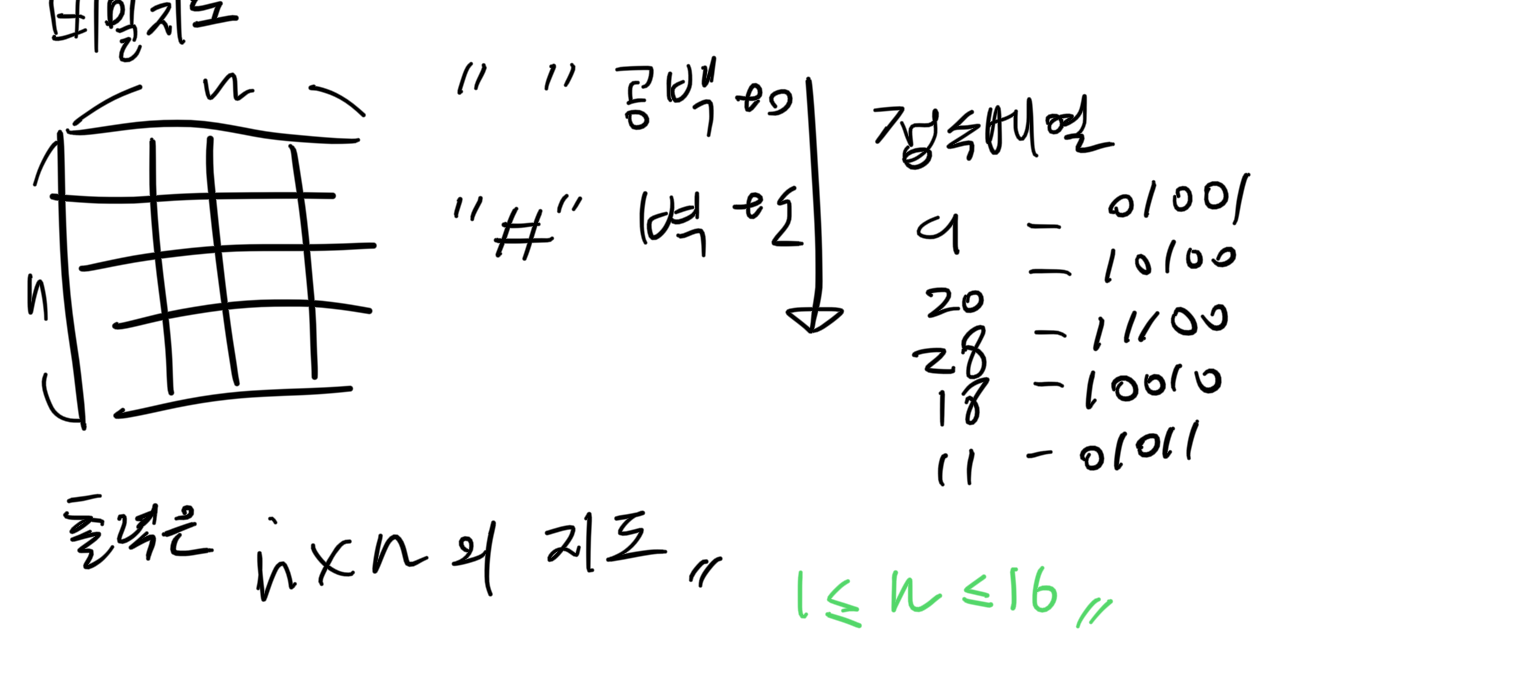 비밀지도
n
n
" " 공백 →0
"#" 벽 →1
정수배열
9 - 01001
20 - 10100
28 - 11100
18 - 10010
11 - 01011
출력은 n×n의 지도 〃
1 ≤ n ≤ 16 〃